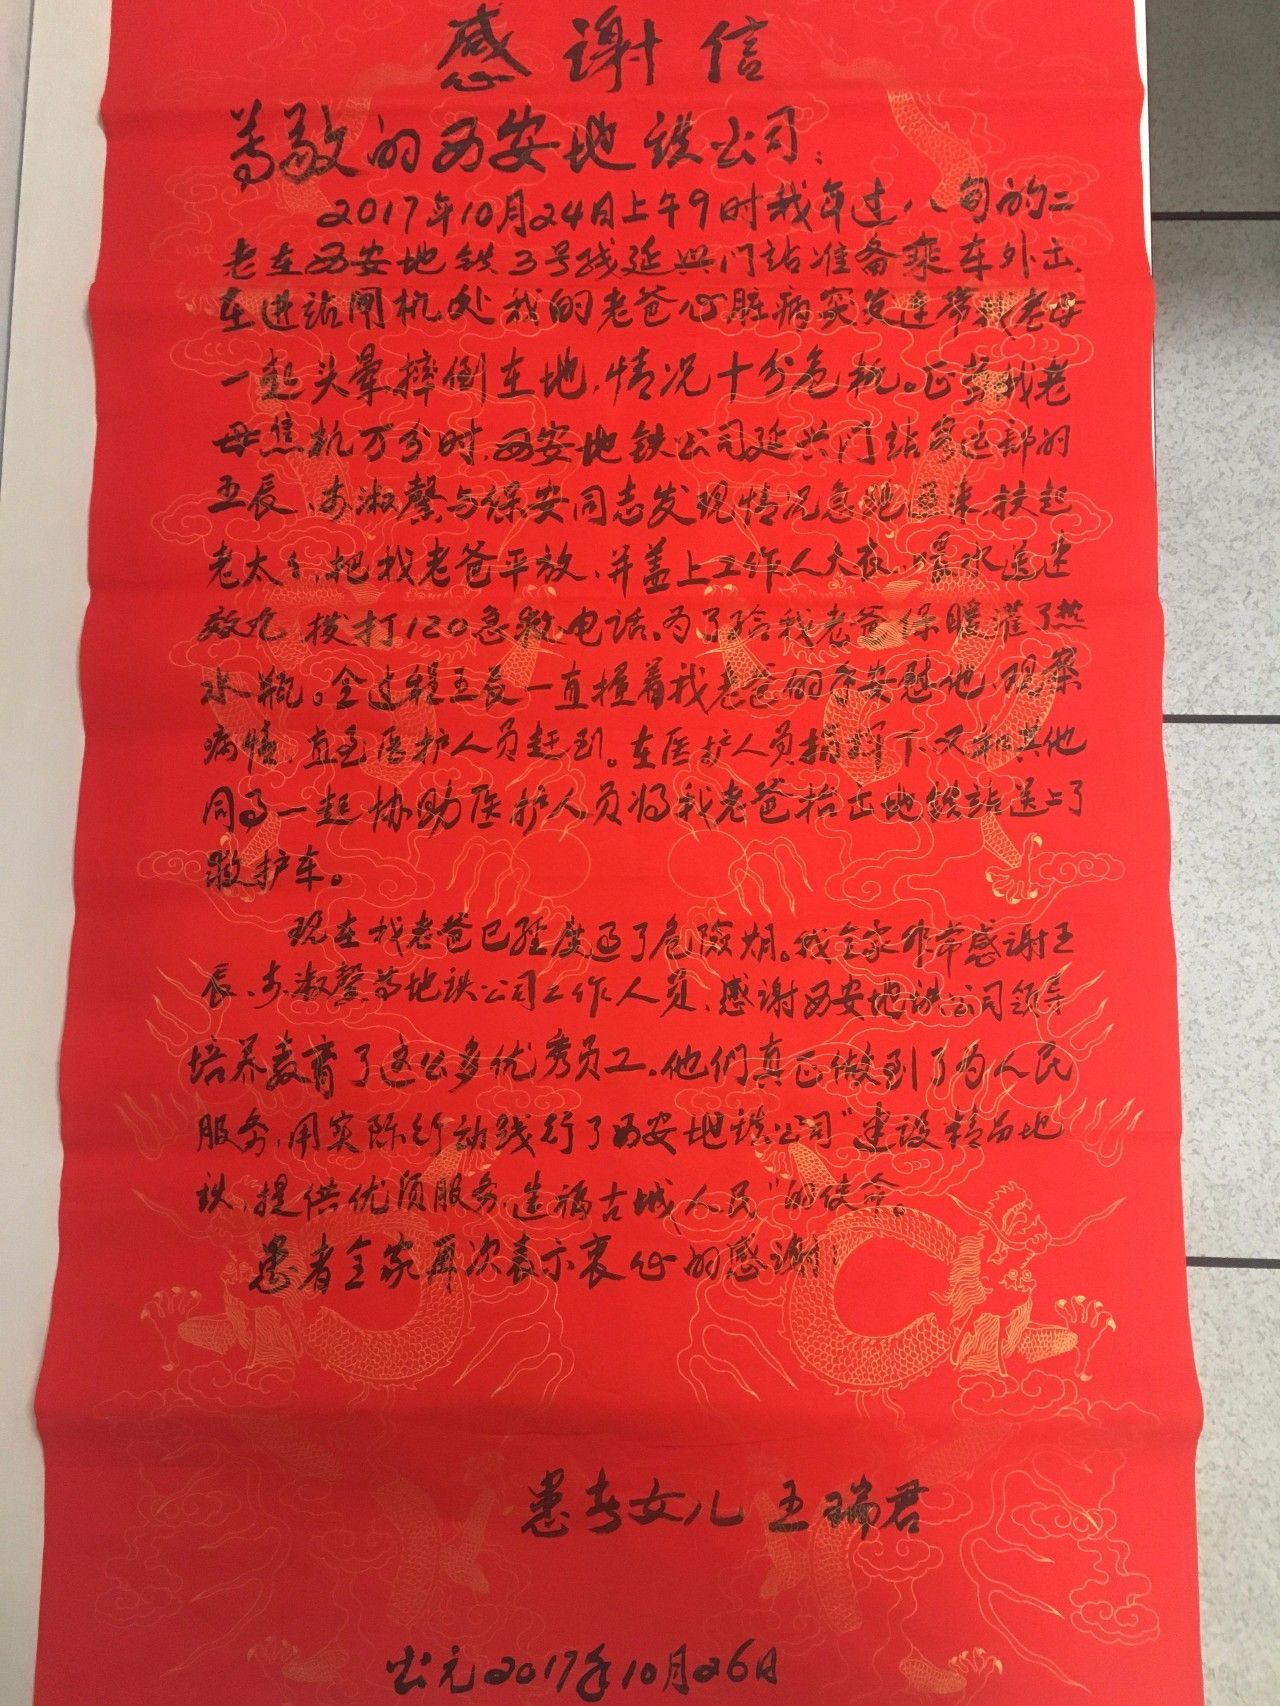 感谢信
尊敬的西安地铁公司:
2017年10月24日上午9时我年过八旬的二
老在西安地铁3号线延兴门站准备乘车外出,
在进站闸机处我的老爸心脏病突发连带我老母
一起头晕摔倒在地,情况十分危机。正当我老
母焦机万分时,西安地铁公司延兴门站客运部的
王辰、李淑馨与保安同志发现情况急跑过来扶起
老太太,把我老爸平放、并盖上工作人大衣、喂水送速
效丸,拨打120急救电话,为了给我老爸保暖灌了热
水瓶。全过程王辰一直握着我老爸的手安慰他,观察
病情,直至医护人员赶到。在医护人员指挥下,又和其他
同事一起协助医护人员将我老爸抬出地铁站送上了
救护车。
现在我老爸已经度过了危险期。我全家非常感谢王
辰、李淑馨等地铁公司工作人员、感谢西安地铁公司领导
培养教育了这么多优秀员工。他们真正做到了为人民
服务,用实际行动践行了西安地铁公司"建设精品地
铁,提供优质服务,造福古城人民"的使命。
患者全家再次表示衷心的感谢!
患者女儿 王瑞君
公元2017年10月26日